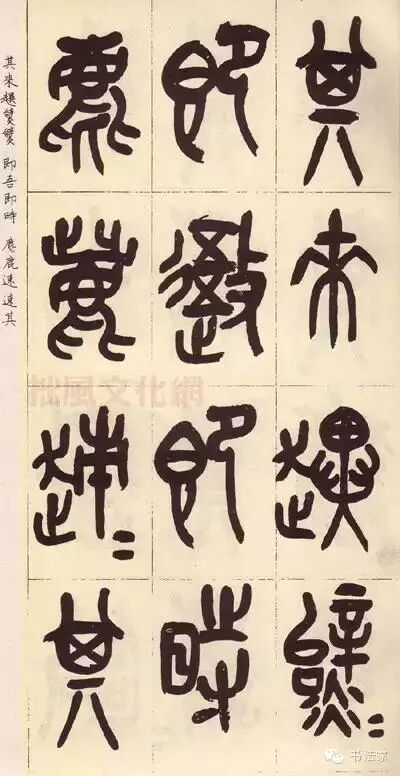 其來趩
即即時
麀鹿速〻其
其來趩 即吾即時 麀鹿速速其
拙風文化網
书法家